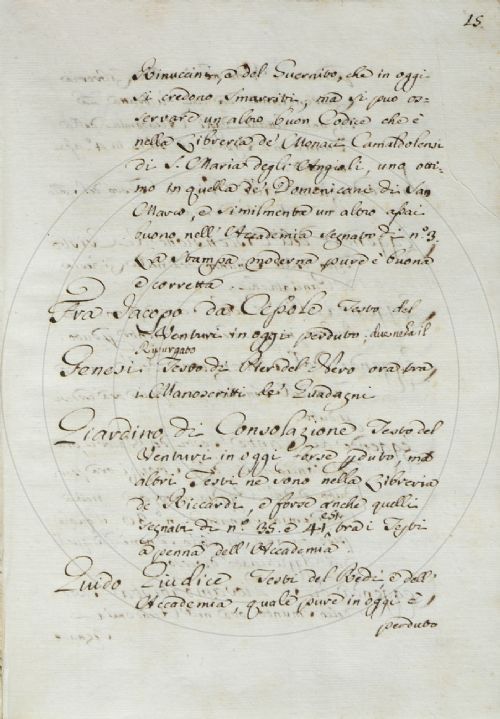 15.
Rinuccini, e del Guernito, che in oggi
si credono smarriti, ma si può os-
servare un altro buon Codice che è
nella Libreria de' Monaci Camaldolensi
di S. Maria degli Angioli, uno otti-
mo in quella de' Domenicani di San
Marco, e similmente un altro assai
buono nell' Accademia segnato di n.º 3
La stampa moderna pure è buona
e corretta
Fra Jacopo da Cessole Testo del
Venturi in oggi perduto.
Ripurgato
Genesi Testo di del Nero ora tra
i Manoscritti de' Guadagni
Giardino di Consolazione Testo del
Venturi in oggi forse pduto, ma
altri Testi ne sono nella Libreria
de' Riccardi, e forse anche quelli
segnati di n.º 35. e 41. tra i Testi
a penna dell' Accademia
Guido Giudice Testi del Redi e dell'
Accademia, quale pure in oggi è
perduto